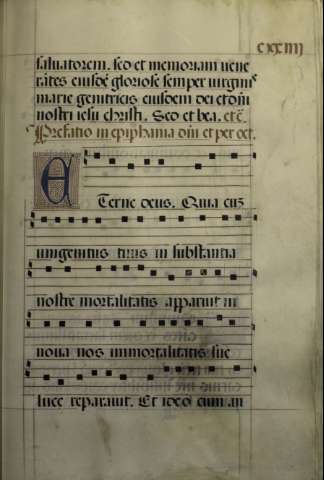 cxxiiij
saluatorem. seo et memoriam uene
rātes eiusdē gloriose semper uirginis
marie genitricis eiusdem dei et dñi
nostri iesu christi. Seo et bea. etc̄.
Prefatio in epiphania dñi et per oct.
Eterne deus. Quia cū
unigenitus tuus in substantia
nostre mortalitatis apparuit in
noua nos immortalitatis sue
luce reparauit. Et ideo cum an